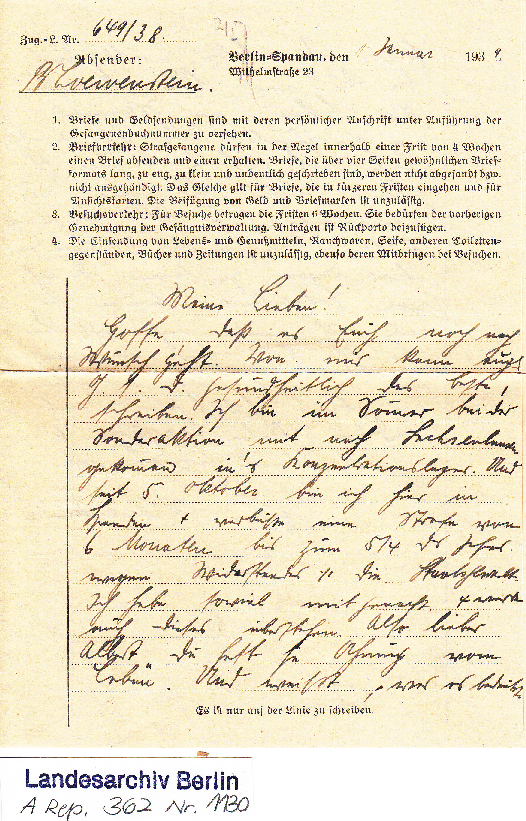 Zug.-L. Nr. 649/38
Absender: Berlin-Spandau, den Januar 193
Wilhelmstraße 23
Loewenstein.
1. Briefe und Geldsendungen sind mit deren persönlicher Anschrift unter Anführung der
Gefangenenbuchnummer zu versehen.
2. Briefverkehr: Strafgefangene dürfen in der Regel innerhalb einer Frist von 4 Wochen
einen Brief absenden und einen erhalten. Briefe, die über vier Seiten gewöhnlichen Brief-
formats lang, zu eng, zu klein und undeutlich geschrieben sind, werden nicht abgesandt bzw.
nicht ausgehändigt. Das Gleiche gilt für Briefe, die in kürzeren Fristen eingehen und für
Ansichtskarten. Die Beifügung von Geld und Briefmarken ist unzulässig.
3. Besuchsverkehr: Für Besuche betragen die Fristen 6 Wochen. Sie bedürfen der vorherigen
Genehmigung der Gefängnisverwaltung. Anträgen ist Rückporto beizufügen.
4. Die Einsendung von Lebens- und Genußmitteln, Rauchwaren, Seife, anderen Toiletten-
gegenständen, Bücher und Zeitungen ist unzulässig, ebenso deren Mitbringen bei Besuchen.
Meine Lieben!
Hoffe daß es Euch noch nach
Wunsch geht. Von mir kann
gesundheitlich das beste
schreiben. Ich bin im Sommer bei der
Sonderaktion mit nach
gekommen in's Konzentrationslager. Und
seit 5. Oktober bin ich hier in
Spandau + verbüße eine Strafe von
6 Monaten bis zum 5/4 ds Jahres
wegen Widerstandes die Staatsgewalt
Ich habe soviel mitgemacht + werde
auch dieses überstehen. Also lieber
Albert Du hast ja Ahnung vom
Leben. Und weißt, was es bedeutet
Es ist nur auf der Linie zu schreiben.
Landesarchiv Berlin
A Rep. 362 Nr. 1130